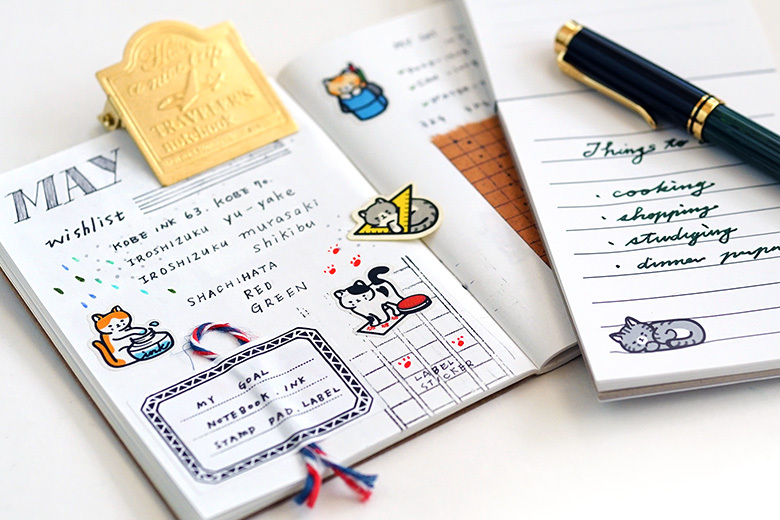 TRAVELER'S
notebook
MAY
wishlist
KOBE INK 63. KOBE 70.
IROSHIZUKU yu-yake
IROSHIZUKU murasaki
shikibu
SHACHIHATA
RED
GREEN
ink
MY GOAL
NOTEBOOK. INK
STAMP PAD. LABEL
LABEL
STICKER
Things to
· cooking
· shopping
· studying
· dinner